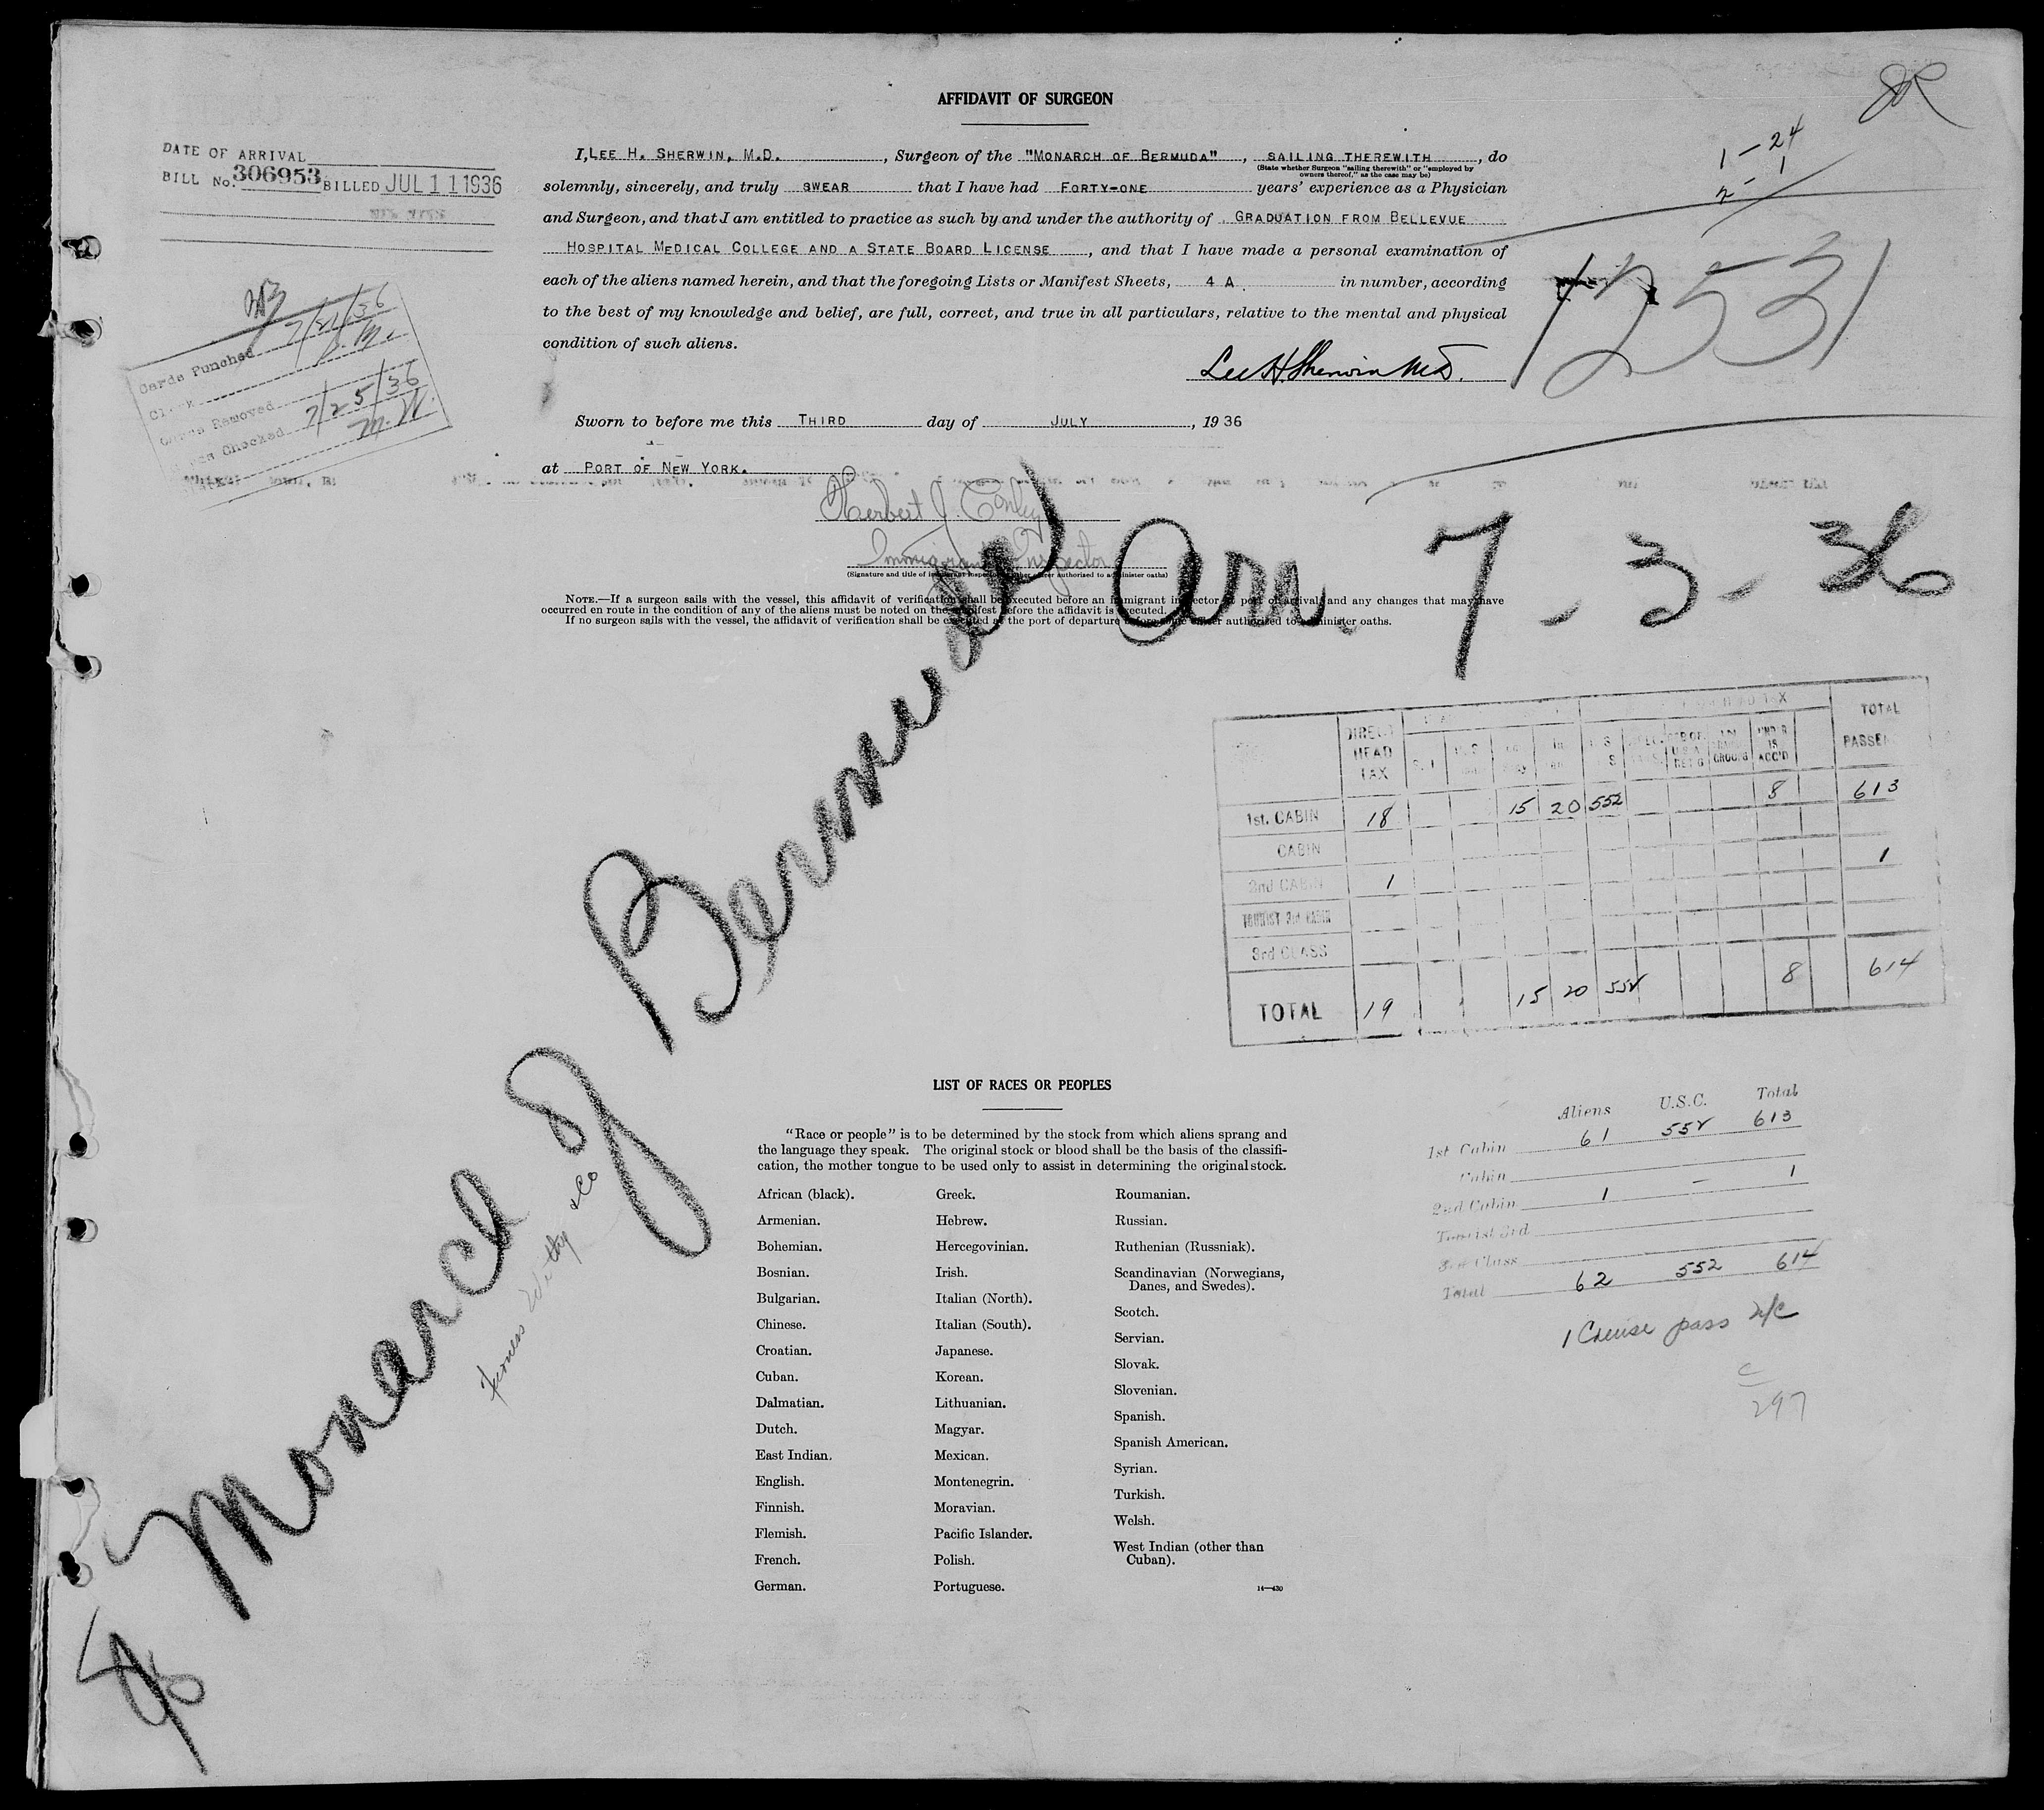 AFFIDAVIT OF SURGEON
I, LEE H. SHERWIN, M.D. , Surgeon of the "MONARCH OF BERMUDA" , SAILING THEREWITH , do
(State whether Surgeon "sailing therewith" or "employed by
owners thereof," as the case may be)
solemnly, sincerely, and truly SWEAR that I have had FORTY-ONE years' experience as a Physician
and Surgeon, and that I am entitled to practice as such by and under the authority of GRADUATION FROM BELLEVUE
HOSPITAL MEDICAL COLLEGE AND A STATE BOARD LICENSE , and that I have made a personal examination of
each of the aliens named herein, and that the foregoing Lists or Manifest Sheets, 4 A. in number, according
to the best of my knowledge and belief, are full, correct, and true in all particulars, relative to the mental and physical
condition of such aliens.
Lee H. Sherwin M.D.
Sworn to before me this THIRD day of JULY , 1936
at PORT OF NEW YORK.
Herbert J. Conley
Immigrant Inspector
(Signature and title of immigrant inspector or other officer authorized to administer oaths)
NOTE.—If a surgeon sails with the vessel, this affidavit of verification shall be executed before an immigrant inspector at port of arrival, and any changes that may have
occurred en route in the condition of any of the aliens must be noted on the manifest before the affidavit is executed.
If no surgeon sails with the vessel, the affidavit of verification shall be executed at the port of departure before some officer authorized to administer oaths.
DATE OF ARRIVAL
BILL No. 306953 BILLED JUL 11 1936
Cards Punched 7/21/36
Clerk
Cards Removed
Checked 7/25/36
M.W.
1 - 24
2 - 1
12531
Monarch of Bermuda Arr. 7-3-36
Furness Withy & Co
DIRECT HEAD TAX
TOTAL PASSEN
UNDER 16 ACC'D
1st. CABIN 18 15 20 552 8 613
CABIN
2nd CABIN 1 1
TOURIST 3rd CABIN
3rd CLASS
TOTAL 19 15 20 552 8 614
Aliens U.S.C. Total
1st Cabin 61 552 613
Cabin
2nd Cabin 1 – 1
Tourist 3rd
3rd Class
Total 62 552 614
1 Cruise pass
297
LIST OF RACES OR PEOPLES
"Race or people" is to be determined by the stock from which aliens sprang and
the language they speak. The original stock or blood shall be the basis of the classifi-
cation, the mother tongue to be used only to assist in determining the original stock.
African (black).
Armenian.
Bohemian.
Bosnian.
Bulgarian.
Chinese.
Croatian.
Cuban.
Dalmatian.
Dutch.
East Indian.
English.
Finnish.
Flemish.
French.
German.
Greek.
Hebrew.
Hercegovinian.
Irish.
Italian (North).
Italian (South).
Japanese.
Korean.
Lithuanian.
Magyar.
Mexican.
Montenegrin.
Moravian.
Pacific Islander.
Polish.
Portuguese.
Roumanian.
Russian.
Ruthenian (Russniak).
Scandinavian (Norwegians,
Danes, and Swedes).
Scotch.
Servian.
Slovak.
Slovenian.
Spanish.
Spanish American.
Syrian.
Turkish.
Welsh.
West Indian (other than
Cuban).
14—430